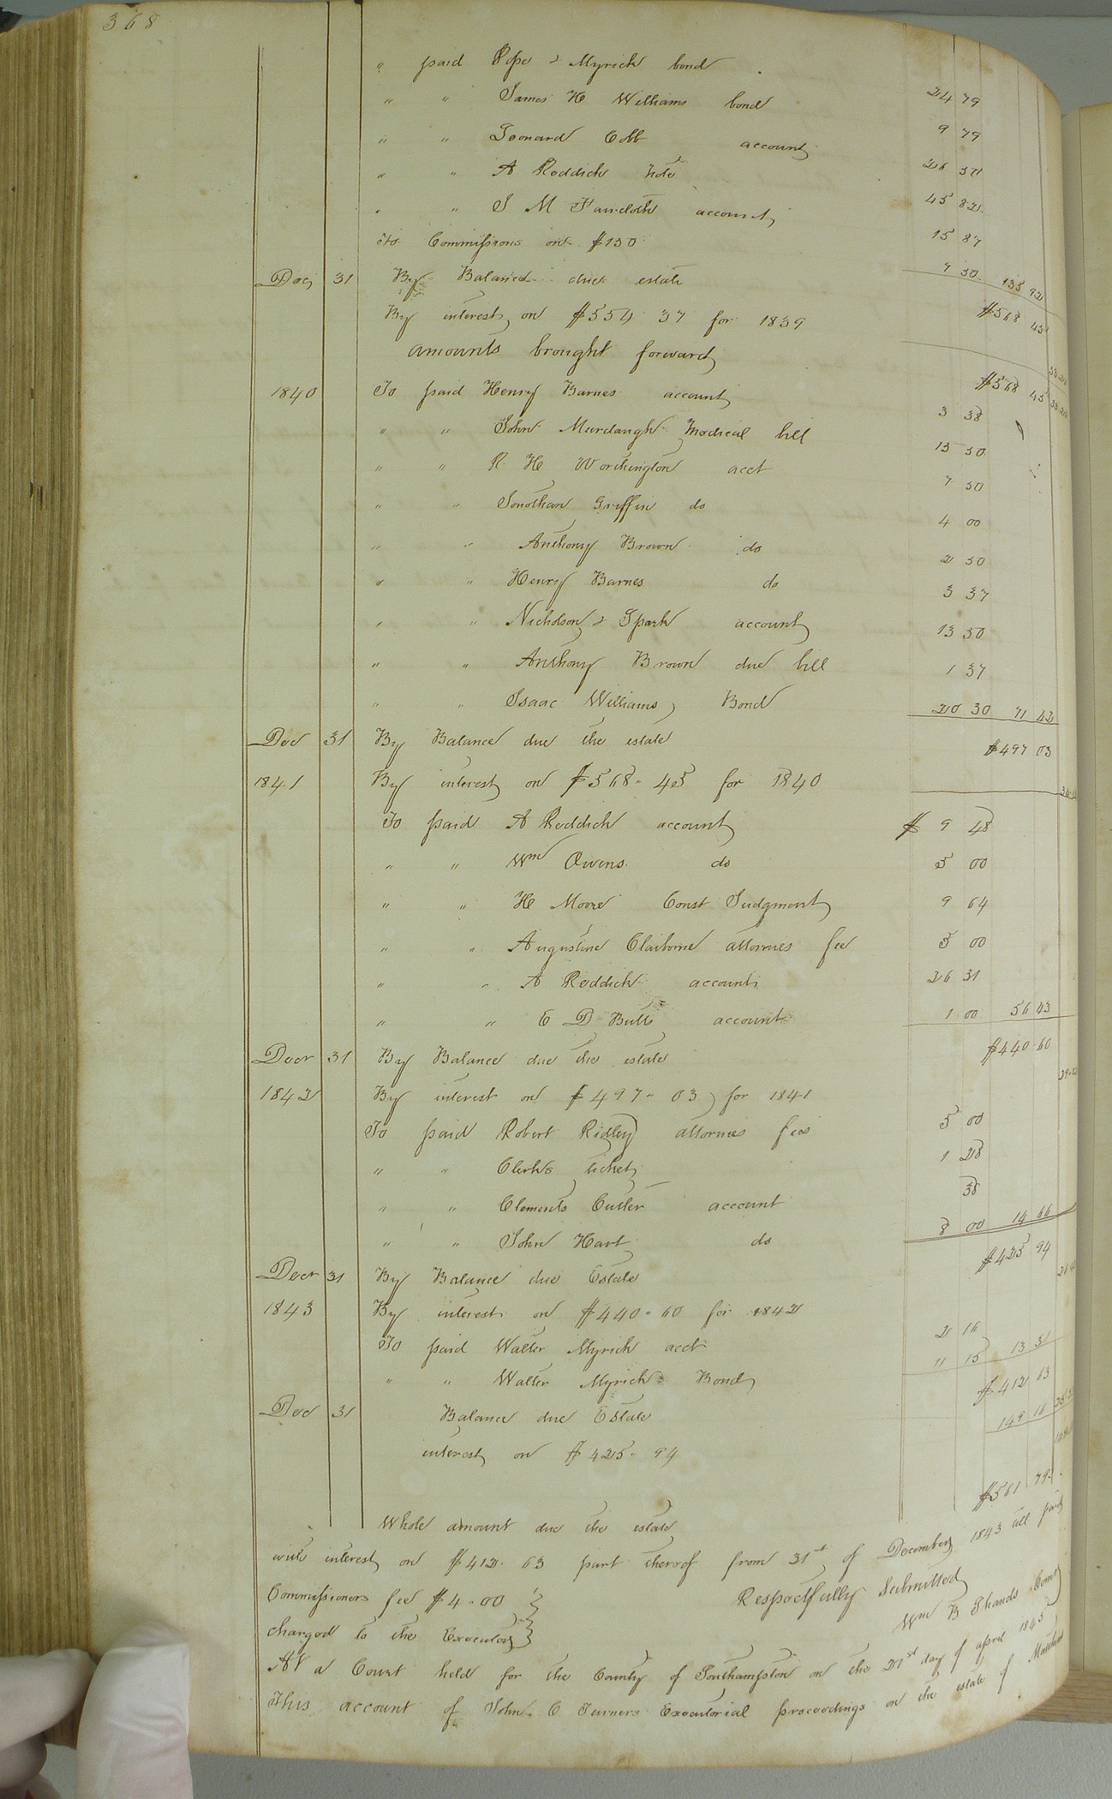 368
" paid Pope & Myrick bond 24 79
" " James H Williams bond 9 79
" " Leonard Cobb account 26 37
" " A Reddick note 45 82
" " S M Faircloth account 15 87
To Commissions on $130 7 50 135 92
Decr 31 By Balance due estate $568 45
By interest on $554 37 for 1839
amounts brought forward $568 45
1840 To paid Henry Barnes account 3 38
" " John Murdaugh Medical bill 15 50
" " R H Worthington acct 7 50
" " Jonathan Griffin do 4 00
" " Anthony Brown do 2 50
" " Henry Barnes do 3 37
" " Nicholson & Spark account 13 50
" " Anthony Brown due bill 1 37
" " Isaac Williams Bond 20 30 71 42
Decr 31 By Balance due the estate $497 03
1841 By interest on $568-45 for 1840
To paid A Reddick account $9 48
" " Wm Owens do 5 00
" " H Moore Const Judgment 9 64
" " Augustine Claiborne attornies fee 5 00
" " A Reddick account 26 31
" " E D Butts account 1 00 56 43
Decr 31 By Balance due the estate $440-60
1842 By interest on $497-03 for 1841
To paid Robert Ridley attornies fees 5 00
" " Clerks ticket 1 28
" " Clements Cutler account 38
" " John Hart do 8 00 14 66
Decr 31 By Balance due Estate $425 94
1843 By interest on $440-60 for 1842
To paid Walter Myrick acct 2 16
" " Walter Myricks Bond 11 15 13 31
Decr 31 Balance due Estate $412 63
interest on $425-94 149 16
Whole amount due the estate $561 79
with interest on $412.63 part thereof from 31st of December 1843 till paid
Commissioners fee $4-00 } Respectfully Submitted
charged to the Executor } Wm B Shands Comr
At a Court held for the County of Southampton on the 21st day of april 1845
This account of John C Turners Executorial proceedings on the estate of